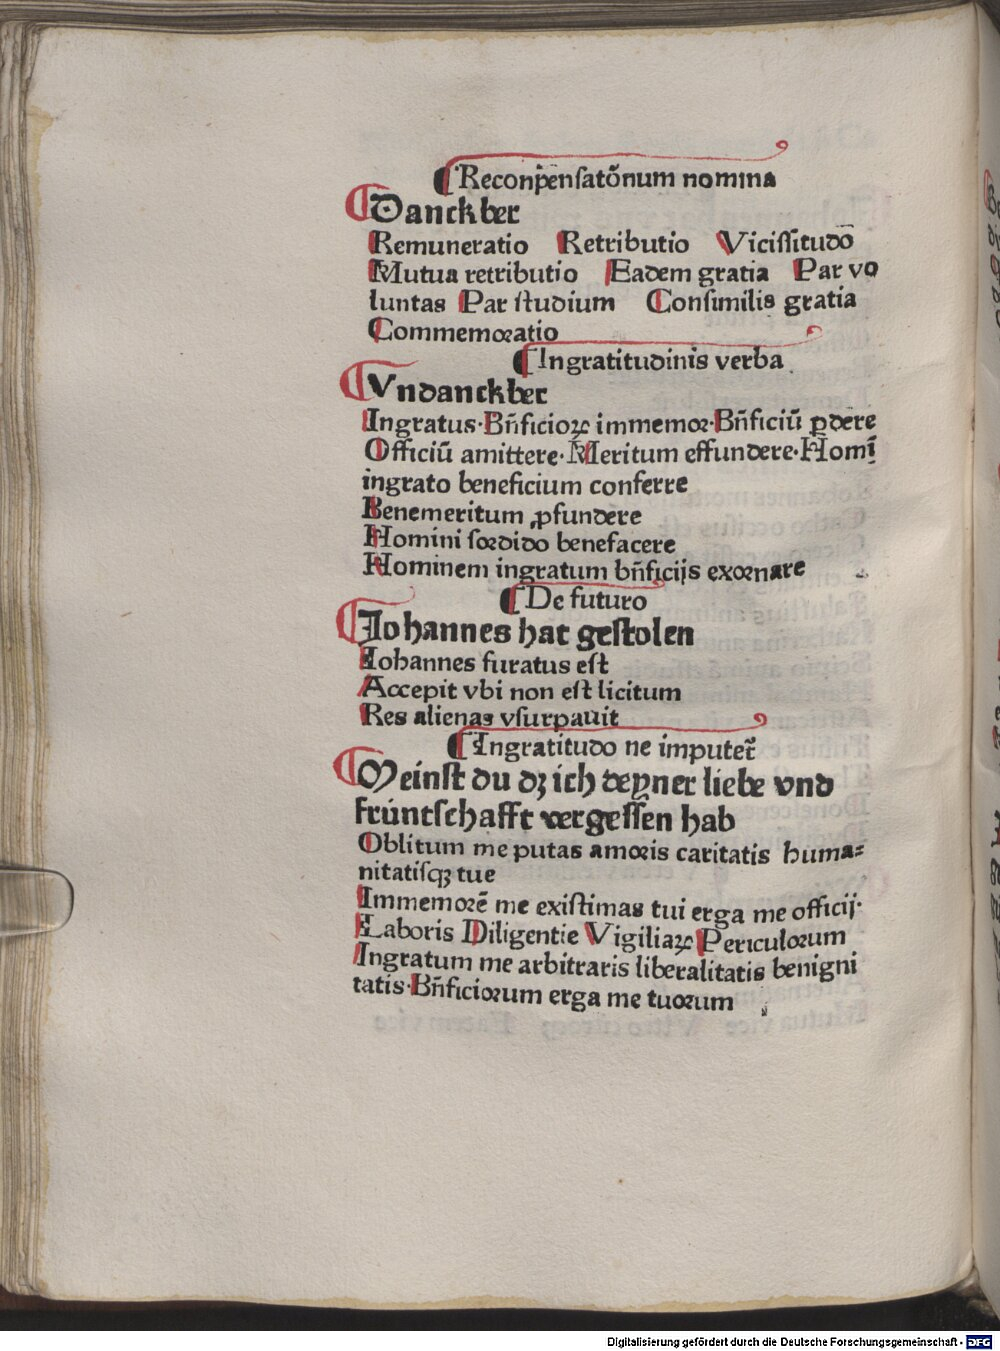 Reconpensatõnum nomina
Danckber
Remuneratio Retributio Vicissitudo
Mutua retributio Eadem gratia Par vo
luntas Par studium Consimilis gratia
Commemoratio
Ingratitudinis verba
Vndanckber
Ingratus·Bñficioꝝ immemor·Bñficiū ꝑdere
Officiū amittere·Meritum effundere·Homī
ingrato beneficium conferre
Benemeritum ꝓfundere
Homini sordido benefacere
Hominem ingratum bñficijs exornare
De futuro
Johannes hat gestolen
Iohannes furatus est
Accepit vbi non est licitum
Res alienas vsurpauit
Ingratitudo ne imputet᷑
Meinst du dz ich deyner liebe vnd
fruntschafft vergessen hab
Oblitum me putas amoris caritatis huma⸗
nitatisqꝫ tue
Immemorē me existimas tui erga me officij·
Laboris Diligentie Vigiliaꝝ Periculorum
Ingratum me arbitraris liberalitatis benigni
tatis·Bñficiorum erga me tuorum
Digitalisierung gefördert durch die Deutsche Forschungsgemeinschaft - DFG